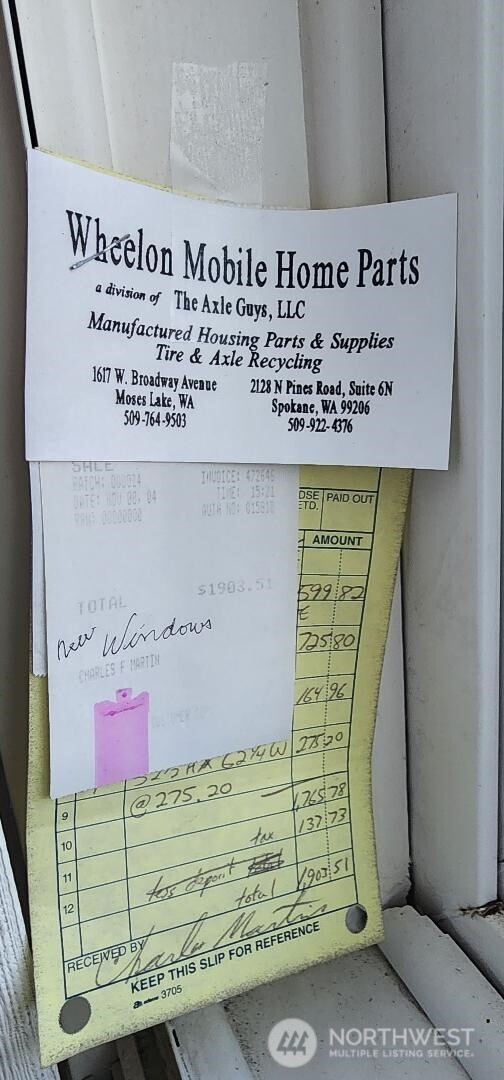 Wheelon Mobile Home Parts
a division of The Axle Guys, LLC
Manufactured Housing Parts & Supplies
Tire & Axle Recycling
1617 W. Broadway Avenue
Moses Lake, WA
509-764-9503
2128 N Pines Road, Suite 6N
Spokane, WA 99206
509-922-4376
SALE
BATCH: 000014
DATE: NOV 08, 04
PAN: 00000000
INVOICE: 472646
TIME: 15:21
AUTH NO: 015810
TOTAL $1903.51
new Windows
CHARLES F MARTIN
PAID OUT
AMOUNT
599 82
725 80
164 96
62 1/4 W 275 20
9 @ 275.20
1,765 78
10 tax 137 73
11 less deposit
12 total 1,903 51
RECEIVED BY Charles Martin
KEEP THIS SLIP FOR REFERENCE
3705
NORTHWEST
MULTIPLE LISTING SERVICE